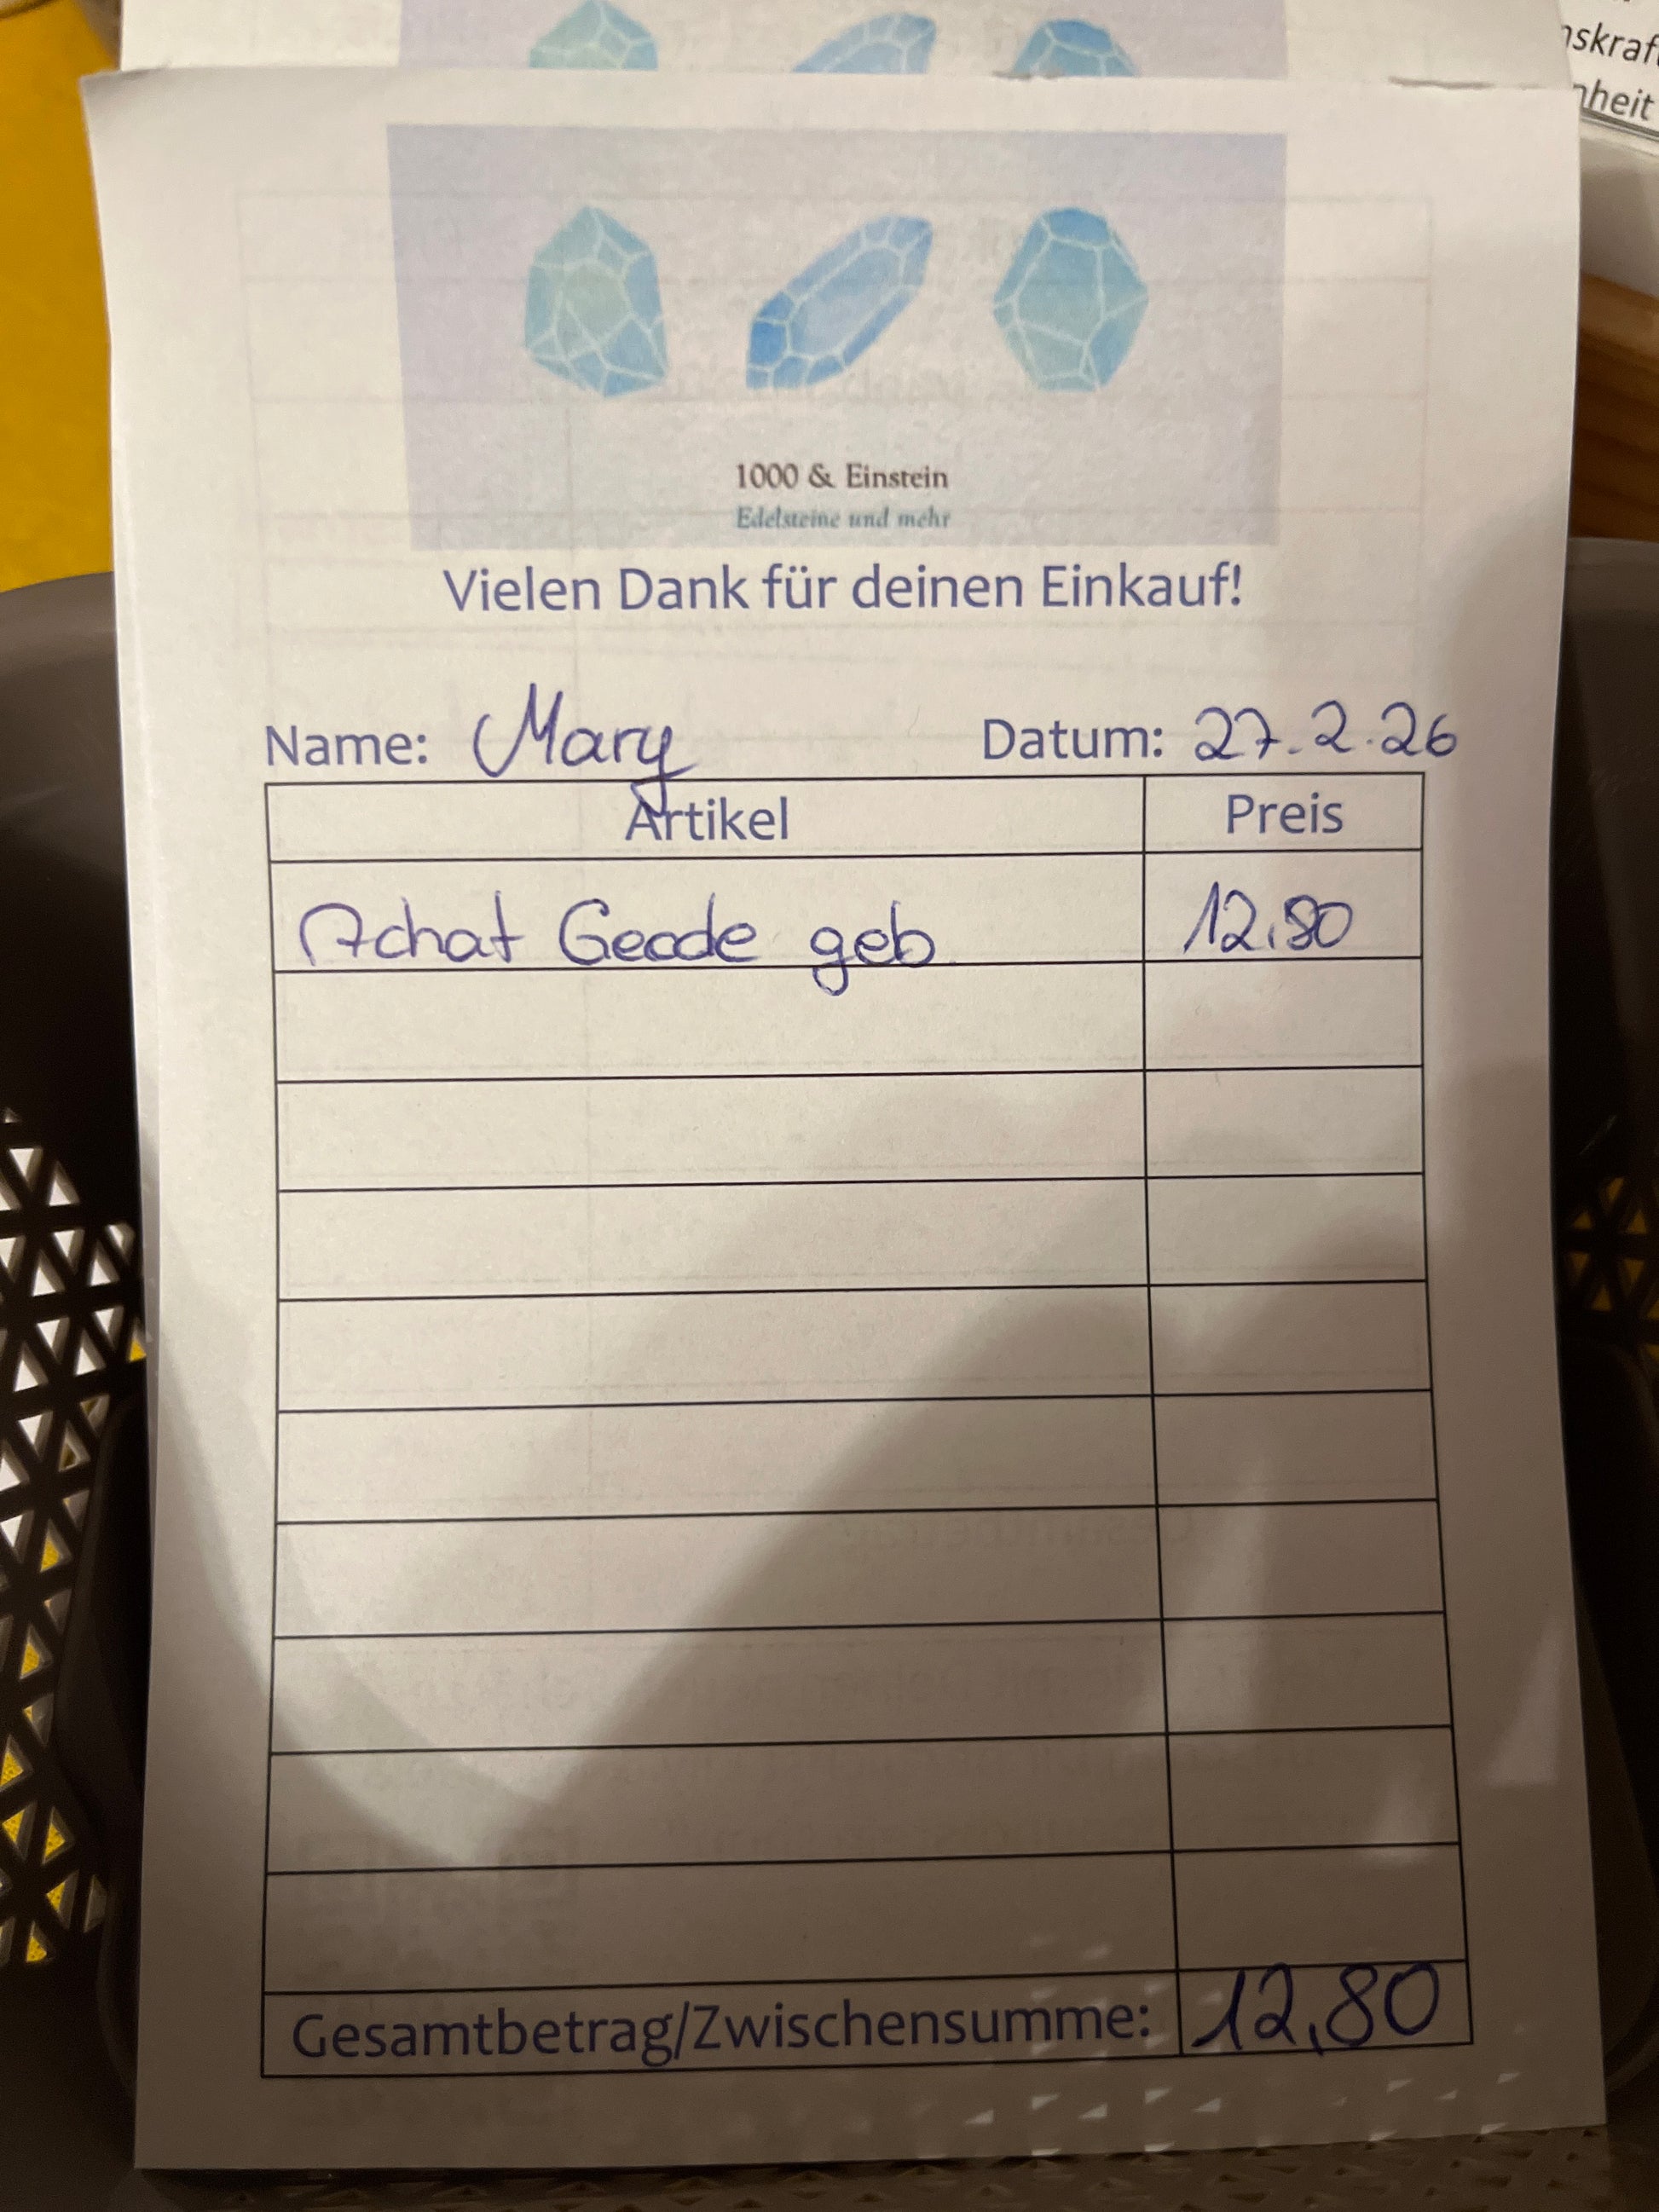 nskraf
nheit
1000 & Einstein
Edelsteine und mehr
Vielen Dank für deinen Einkauf!
Name: Mary Datum: 27.2.26
Artikel Preis
Achat Geode geb 12,80
Gesamtbetrag/Zwischensumme: 12,80